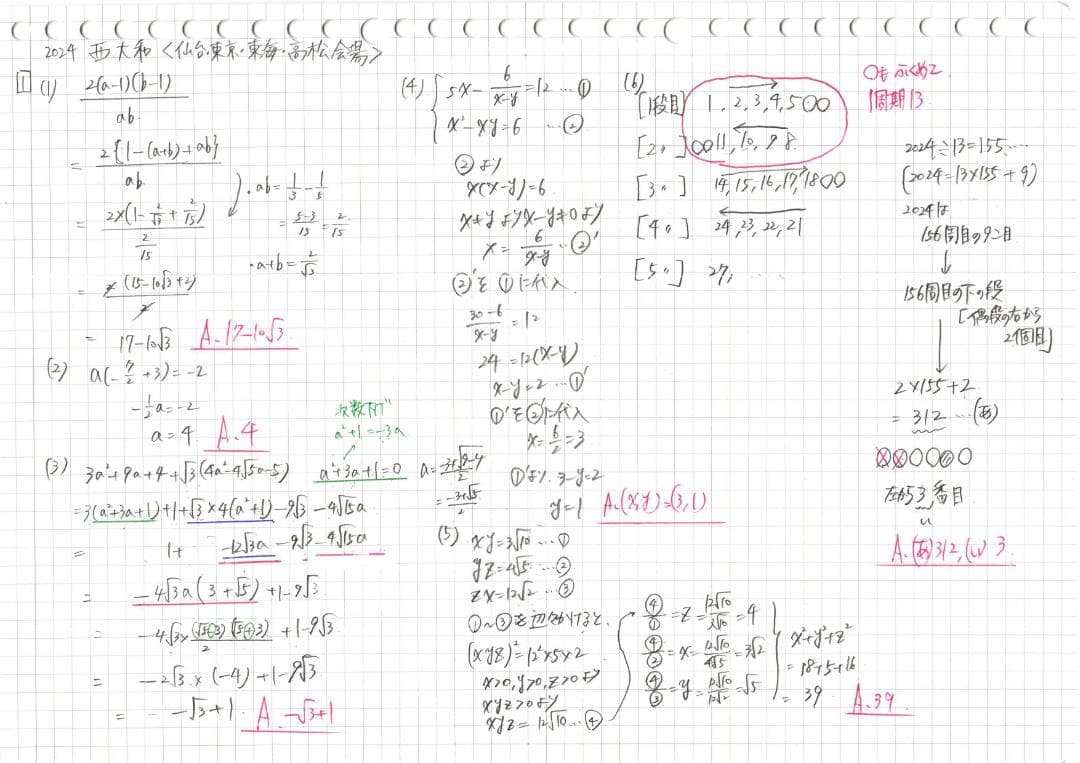 2024 西大和〈仙台・東京・東海・高松会場〉
1 (1) 2(a-1)(b-1)/ab
= 2{1-(a+b)+ab}/ab
= 2×(1-2/√3+2/15)/(2/15)
・ab=1/3-1/5
=(5-3)/15=2/15
・a+b=2/√3
= (15-10√3+2)
= 17-10√3 A. 17-10√3
(2) a(-7/2+3)=-2
-1/2a=-2
a=4 A. 4
(3) 3a²+9a+4+√3(4a²-4√5a-5) a²+3a+1=0 a=(-3+√9-4)/2
次数下げ
a²+1=-3a
=(-3+√5)/2
=3(a²+3a+1)+1+√3×4(a²+1)-9√3-4√15a
= 1+ -12√3a-9√3-4√15a
= -4√3a(3+√5)+1-9√3
= -4√3×(√5-3)(√5+3)/2+1-9√3
= -2√3×(-4)+1-9√3
= -√3+1 A. -√3+1
(4) { 5x-6/(x-y)=12 …①
x²-xy=6 …②
②より
x(x-y)=6
x≠yよりx-y≠0より
x=6/(x-y) …②'
②'を①に代入
(30-6)/(x-y)=12
24=12(x-y)
x-y=2 …①'
①'を②'に代入
x=6/2=3
①'より、3-y=2
y=1 A. (x,y)=(3,1)
(5) xy=3√10 …①
yz=4√5 …②
zx=12√2 …③
①~③を辺々かけると、
(xyz)²=12²×5×2
x>0,y>0,z>0より
xyz>0より
xyz=12√10 …④
④/①=z=12√10/3√10=4
④/②=x=12√10/4√5=3√2
④/③=y=12√10/12√2=√5
x²+y²+z²
=18+5+16
=39
A. 39
(6)
[1段目] 1,2,3,4,5○○
[2〃] ○○11,10,9 8
[3〃] 14,15,16,17,18○○
[4〃] 24,23,22,21
[5〃] 27,
○もふくめて
1周期13
2024÷13=155…
(2024=13×155+9)
2024は
156周目の9コ目
↓
156周目の下の段
[偶段の右から
2個目]
2×155+2
=312 …(あ)
○○○○○○
左から3番目
A. (あ)312,(い)3